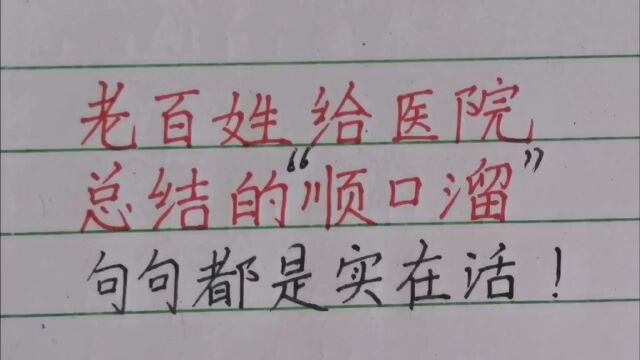 老百姓给医院
总结的“顺口溜”
句句都是实在话！